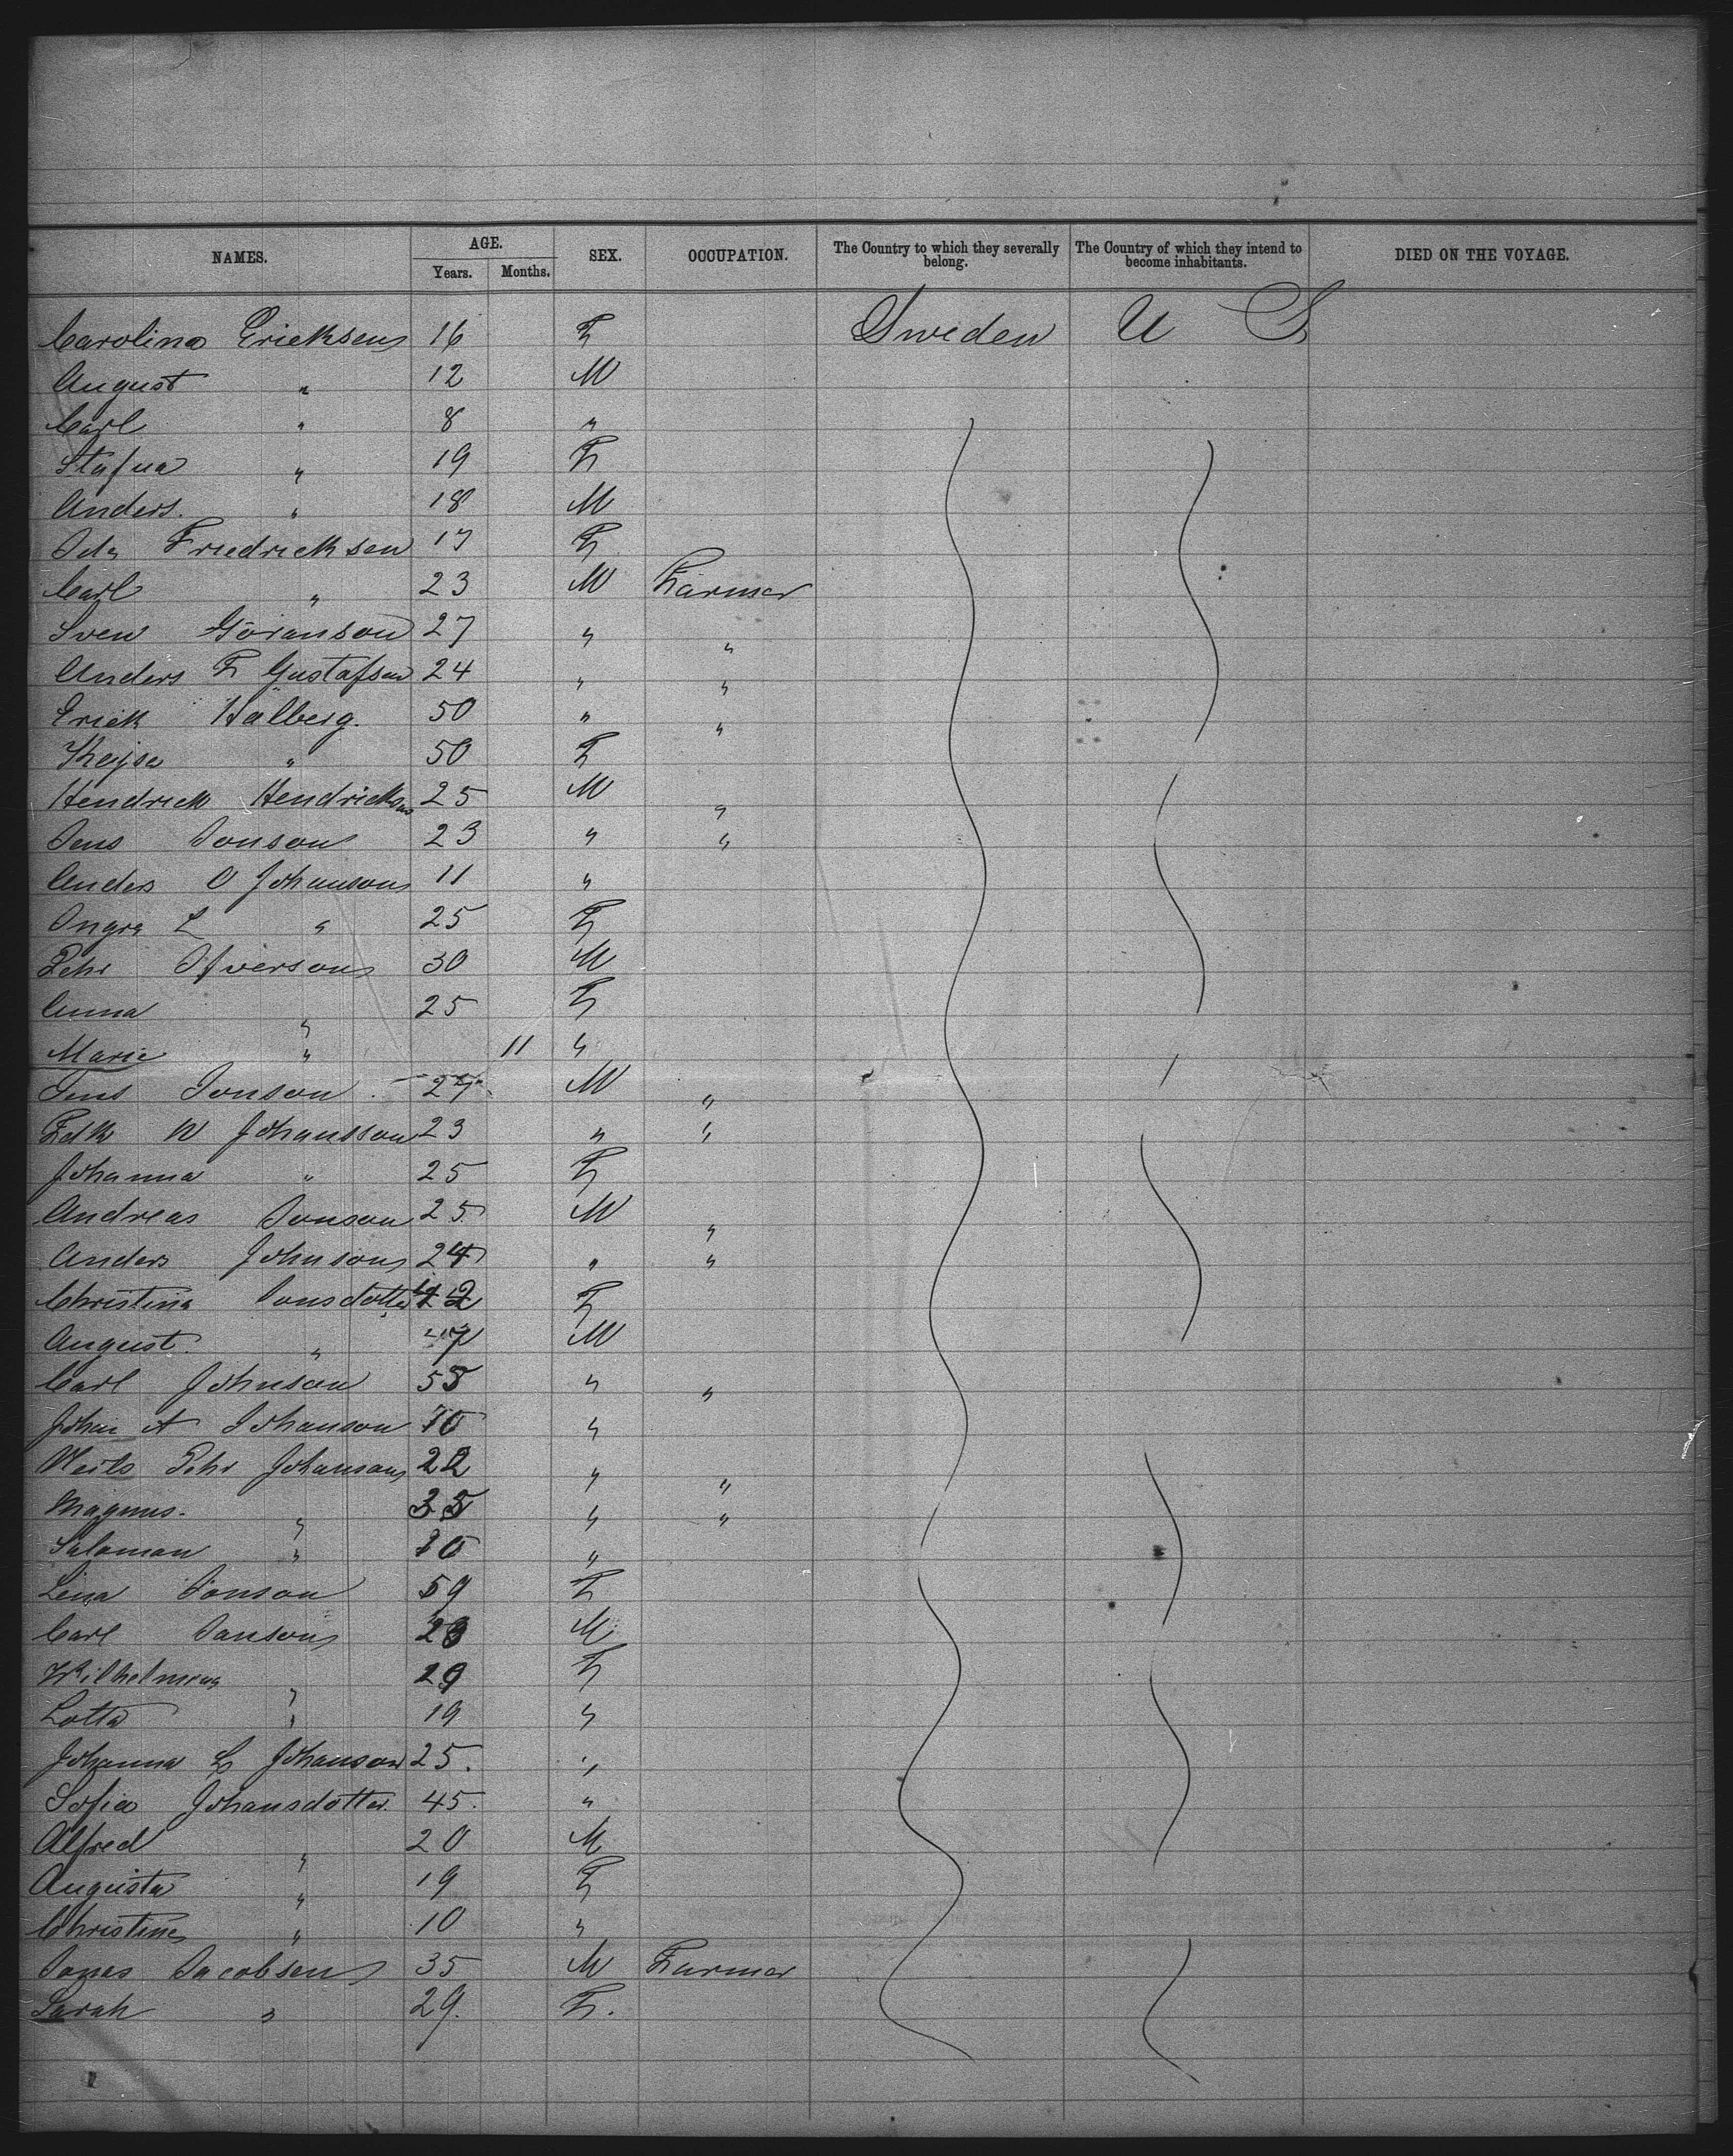 NAMES. AGE. SEX. OCCUPATION. The Country to which they severally belong. The Country of which they intend to become inhabitants. DIED ON THE VOYAGE.
Years. Months.
Carolina Ericksen 16 F Sweden U S
August " 12 M
Carl " 8 "
" 19 F
Anders. " 18 M
Ida Friedricksen 17 F
Carl " 23 M Farmer
Sven Göranson 27 " "
Anders F Gustafson 24 " "
Erick Hälberg. 50 " "
Kejsa " 50 F
Hendrick Hendrickson 25 M "
Jens Jonson 23 " "
Anders O Johanson 11 "
L " 25 F
Pehr 30 M
Anna " 25 F
Marie " 11 "
Jens Jonson 27 M "
W Johansson 23 " "
Johanna " 25 F
Andreas Jonson 25 M "
Anders Johnson 24 " "
Christina Jonsdotter F
August. " M
Carl Johnson 55 " "
Johan A Johanson "
Pehr Johanson 22 " "
Magnus. " 35 " "
Salomon " 10 "
Lena Jonson 59 F
Carl Janson M
Wilhelmina " 29 F
Lotta " 19 "
Johanna L Johanson 25. "
Sofia Johansdotter. 45. "
Alfred " 20 M
Augusta " 19 F
Christine " 10 "
Jonas Jacobsen 35 M Farmer
Sarah " 29. F.